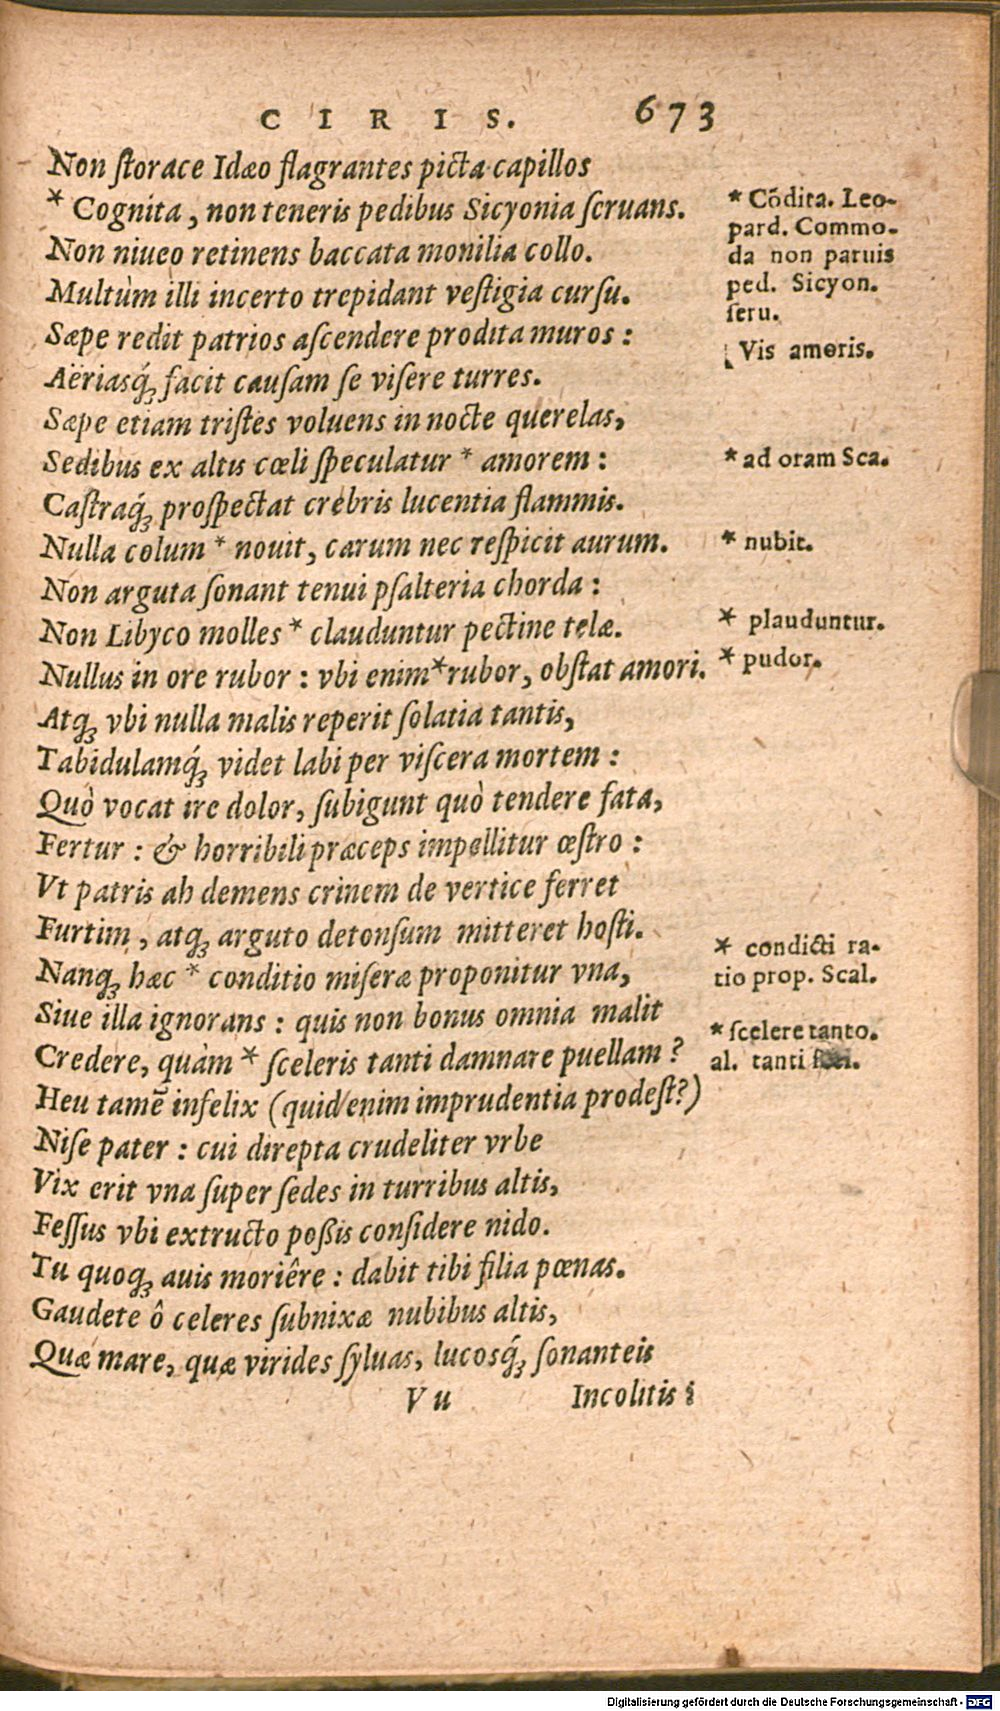 CIRIS. 673
Non ſtorace Idæo flagrantes picta capillos
* Cognita, non teneris pedibus Sicyonia ſeruans.
Non niueo retinens baccata monilia collo.
Multùm illi incerto trepidant veſtigia curſu.
Sæpe redit patrios aſcendere prodita muros :
Aëriasq́ꝫ facit cauſam ſe viſere turres.
Sæpe etiam triſtes voluens in nocte querelas,
Sedibus ex altis cœli ſpeculatur * amorem :
Caſtraq́ꝫ proſpectat crebris lucentia flammis.
Nulla colum * nouit, carum nec reſpicit aurum.
Non arguta ſonant tenui pſalteria chorda :
Non Libyco molles * clauduntur pectine telæ.
Nullus in ore rubor : vbi enim * rubor, obſtat amori.
Atqꝫ vbi nulla malis reperit ſolatia tantis,
Tabidulamq́ꝫ videt labi per viſcera mortem :
Quò vocat ire dolor, ſubigunt quò tendere fata,
Fertur : & horribili præceps impellitur œſtro :
Vt patris ah demens crinem de vertice ferret
Furtim, atqꝫ arguto detonſum mitteret hoſti.
Nanqꝫ hæc * conditio miſeræ proponitur vna,
Siue illa ignorans : quis non bonus omnia malit
Credere, quàm * ſceleris tanti damnare puellam ?
Heu tamē infelix (quid enim imprudentia prodeſt?)
Niſe pater : cui direpta crudeliter vrbe
Vix erit vna ſuper ſedes in turribus altis,
Feſſus vbi extructo poßis conſidere nido.
Tu quoqꝫ auis moriêre : dabit tibi filia pœnas.
Gaudete ô celeres ſubnixæ nubibus altis,
Quæ mare, quæ virides ſyluas, lucosq́ꝫ ſonanteis
V u Incolitis :
* Cōdita. Leo-
pard. Commo-
da non paruis
ped. Sicyon.
ſeru.
Vis amoris.
* ad oram Sca.
* nubit.
* plauduntur.
* pudor.
* condicti ra-
tio prop. Scal.
* ſcelere tanto.
al. tanti
Digitalisierung gefördert durch die Deutsche Forschungsgemeinschaft - DFG